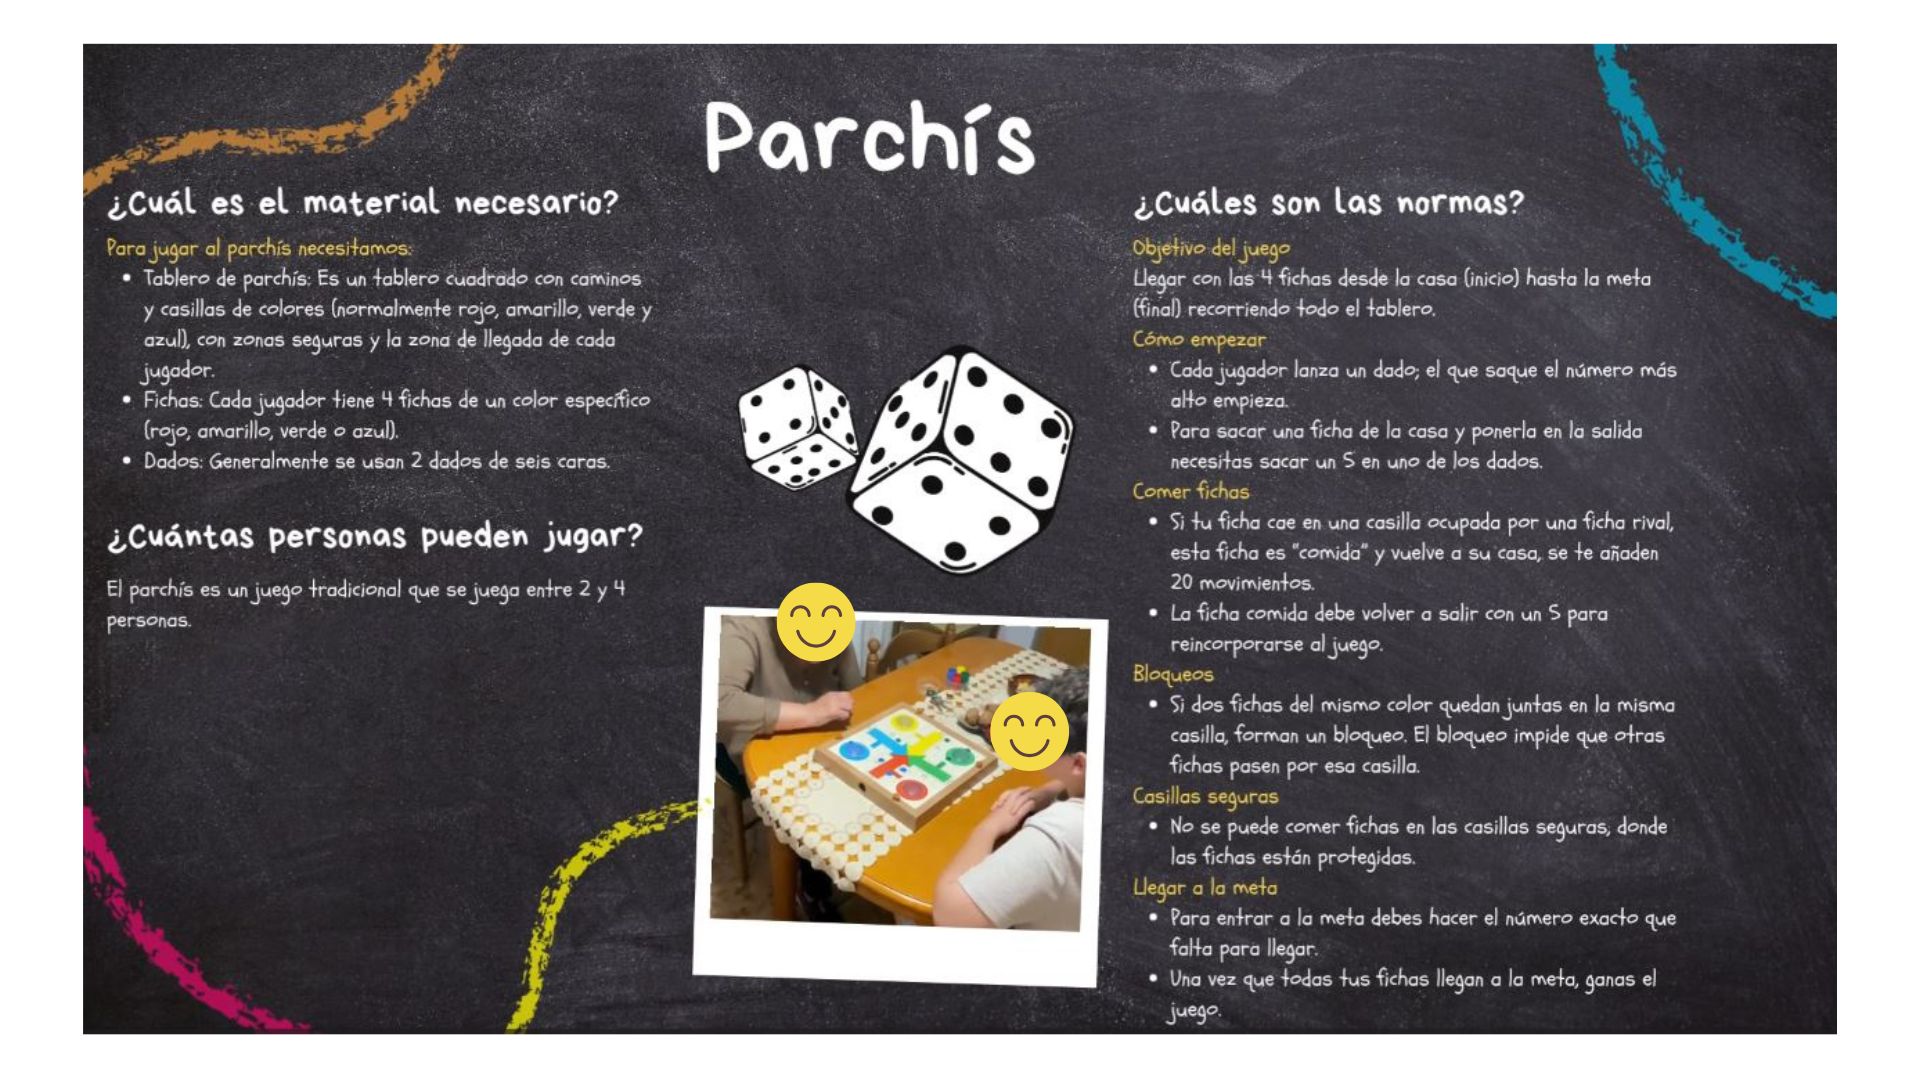 Parchís
¿Cuál es el material necesario?
Para jugar al parchís necesitamos:
• Tablero de parchís: Es un tablero cuadrado con caminos
y casillas de colores (normalmente rojo, amarillo, verde y
azul), con zonas seguras y la zona de llegada de cada
jugador.
• Fichas: Cada jugador tiene 4 fichas de un color específico
(rojo, amarillo, verde o azul).
• Dados: Generalmente se usan 2 dados de seis caras.
¿Cuántas personas pueden jugar?
El parchís es un juego tradicional que se juega entre 2 y 4
personas.
¿Cuáles son las normas?
Objetivo del juego
Llegar con las 4 fichas desde la casa (inicio) hasta la meta
(final) recorriendo todo el tablero.
Cómo empezar
• Cada jugador lanza un dado; el que saque el número más
alto empieza.
• Para sacar una ficha de la casa y ponerla en la salida
necesitas sacar un 5 en uno de los dados.
Comer fichas
• Si tu ficha cae en una casilla ocupada por una ficha rival,
esta ficha es "comida" y vuelve a su casa, se te añaden
20 movimientos.
• La ficha comida debe volver a salir con un 5 para
reincorporarse al juego.
Bloqueos
• Si dos fichas del mismo color quedan juntas en la misma
casilla, forman un bloqueo. El bloqueo impide que otras
fichas pasen por esa casilla.
Casillas seguras
• No se puede comer fichas en las casillas seguras, donde
las fichas están protegidas.
Llegar a la meta
• Para entrar a la meta debes hacer el número exacto que
falta para llegar.
• Una vez que todas tus fichas llegan a la meta, ganas el
juego.